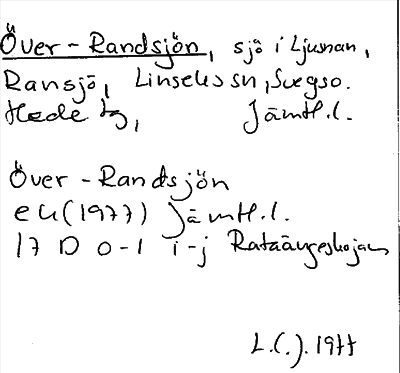 Över-Randsjön, sjö i Ljusnan,
Ransjö, Linsells sn, Svegs o.
Hede tg, Jämtl. l.
Över-Randsjön
ek (1977) Jämtl. l.
17 D 0-1 i-j
L.(.). 1977